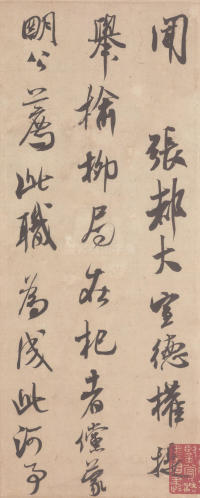 聞張都大宣德權提
舉榆柳局在杞者儻蒙
明公薦此職為成此河事